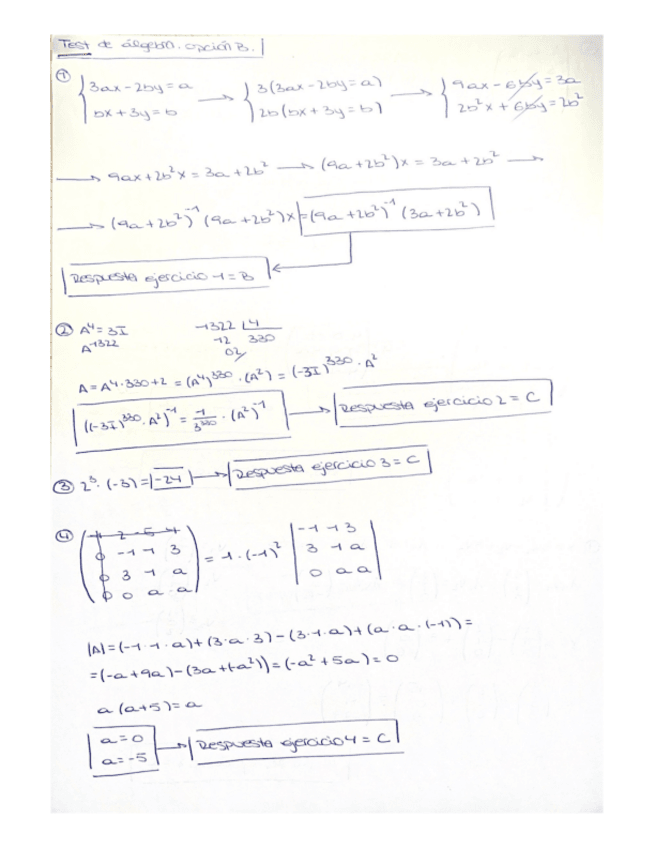 Test de álgebra. opción B.
① { 3ax - 2by = a → { 3(3ax - 2by = a) → { 9ax - 6by = 3a
bx + 3y = b 2b(bx + 3y = b) 2b²x + 6by = 2b²
→ 9ax + 2b²x = 3a + 2b² → (9a + 2b²)x = 3a + 2b² →
→ (9a + 2b²)⁻¹ (9a + 2b²)x = (9a + 2b²)⁻¹ (3a + 2b²)
Respuesta ejercicio 1 = B
② A⁴ = 3I 1322 |4
A¹³²² 12 330
02
A = A⁴·330+2 = (A⁴)³³⁰ · (A²) = (-3I)³³⁰ · A²
((-3I)³³⁰ · A²)⁻¹ = 1/3³³⁰ · (A²)⁻¹ → Respuesta ejercicio 2 = C
③ 2³ · (-3) = -24 → Respuesta ejercicio 3 = C
④ 1 2 -5 4 -1 1 3
0 -1 1 3 = 1 · (-1)² 3 1 a
0 3 1 a 0 a a
0 0 a a
|A| = (-1 · 1 · a) + (3 · a · 3) - (3 · 1 · a) + (a · a · (-1)) =
= (-a + 9a) - (3a + (-a²)) = (-a² + 5a) = 0
a (a+5) = a
a = 0
a = -5 → Respuesta ejercicio 4 = C